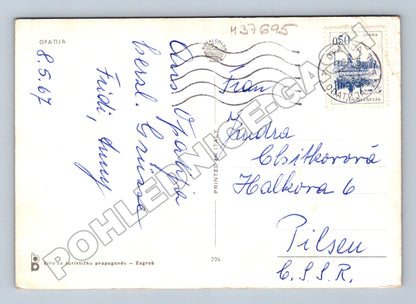 OPATIJA
8.5.67
Aus Opatija
herzl. Grüsse
Fridi, Anny
Biro za turističku propagandu – Zagreb
PRINTED IN ITALY
206
H37695
0,50
JUGOSLAVIJA
Frau
Jindra
Chitkorová
Halkova 6
Pilsen
Č.S.S.R.
POHLEDNICE-GASH